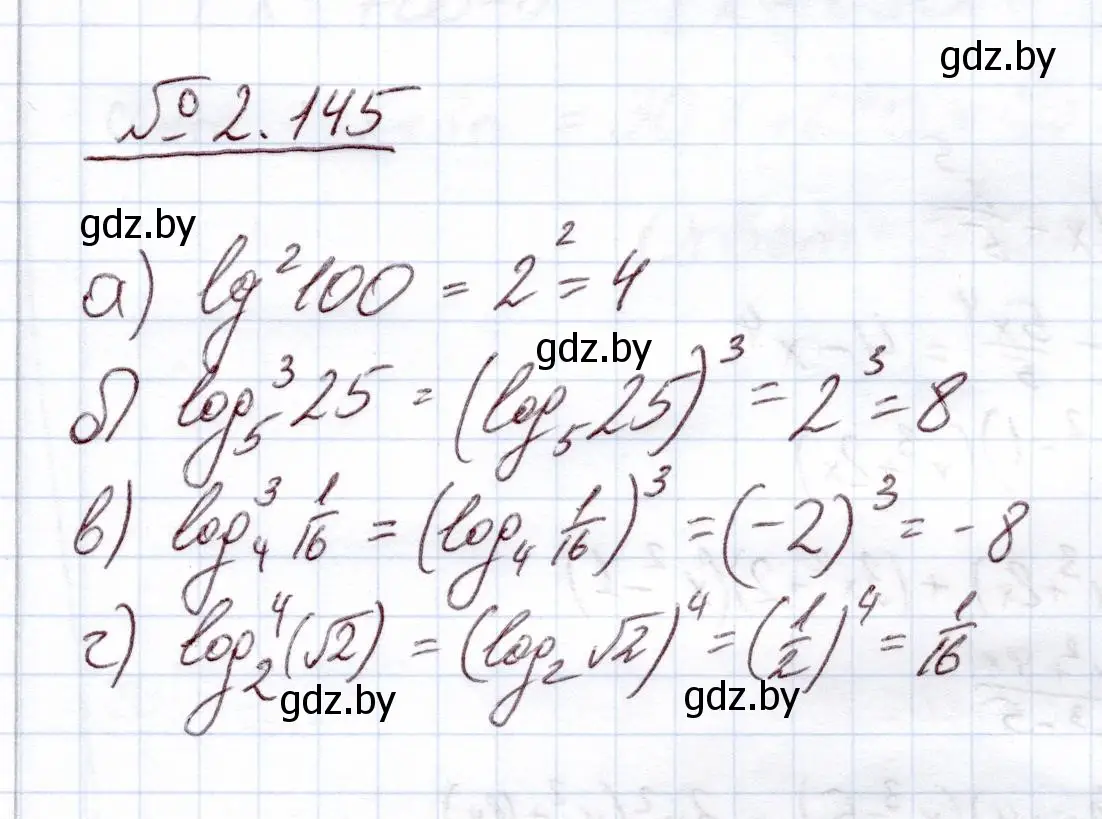 gdz.by
№ 2.145
gdz.by
а) lg²100 = 2² = 4
gdz.by
б) log₅³ 25 = (log₅ 25)³ = 2³ = 8
в) log₄³ 1/16 = (log₄ 1/16)³ = (-2)³ = -8
г) log₂⁴ (√2) = (log₂ √2)⁴ = (1/2)⁴ = 1/16
gdz.by gdz.by